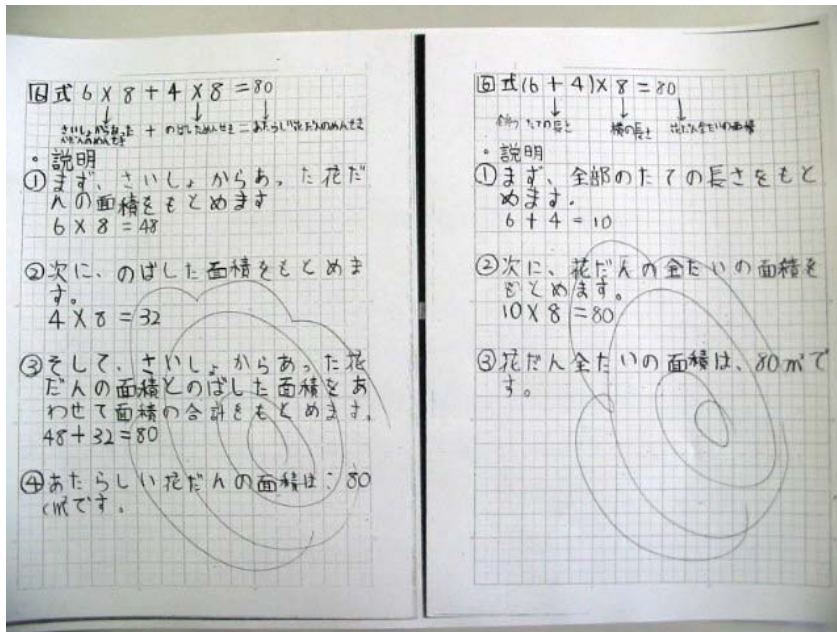 6 式 6×8+4×8=80
さいしょからあった + のばしためんせき=あたらしい花だんのめんせき
花だんのめんせき
・説明
① まず、さいしょからあった花だ
んの面積をもとめます
6×8=48
② 次に、のばした面積をもとめま
す。
4×8=32
③ そして、さいしょからあった花
だんの面積とのばした面積をあ
わせて面積の合計をもとめます。
48+32=80
④ あたらしい花だんの面積は、80
c㎡です。
6 式(6+4)×8=80
たての長さ 横の長さ 花だん全たいの面積
・説明
① まず、全部のたての長さをもと
めます.
6+4=10
② 次に、花だんの全たいの面積を
もとめます。
10×8=80
③ 花だん全たいの面積は、80㎡で
す。